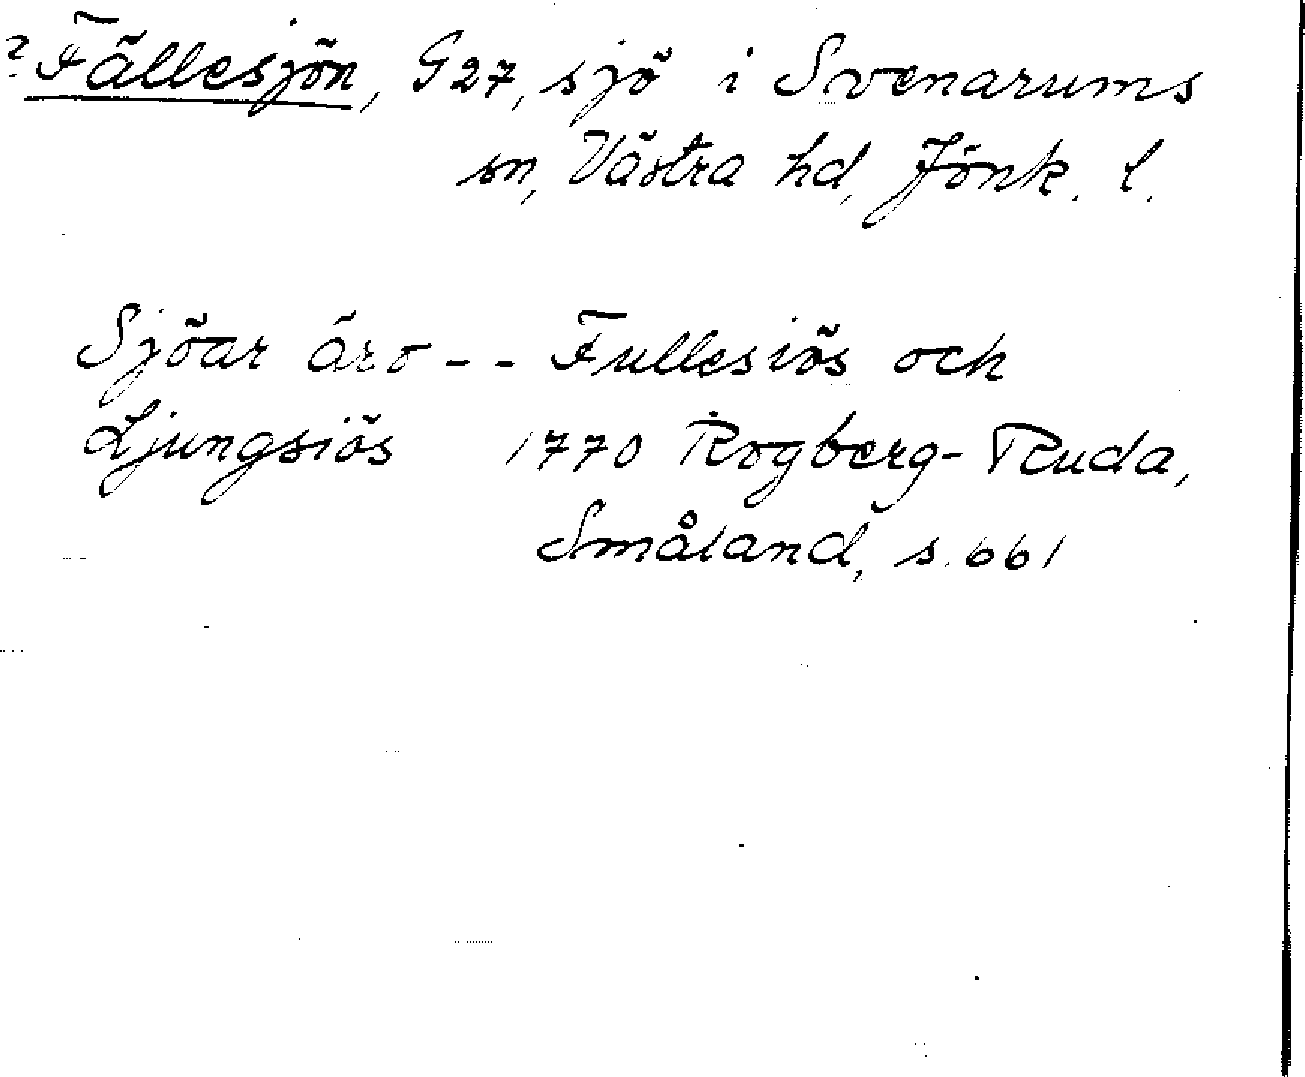 ? Fällesjön, G27, sjö i Svenarums
sn, Västra hd, Jönk. l.
Sjöar äro - - Fullesiös och
Ljungsiös 1770 Rogberg-Ruda,
Småland, s. 661